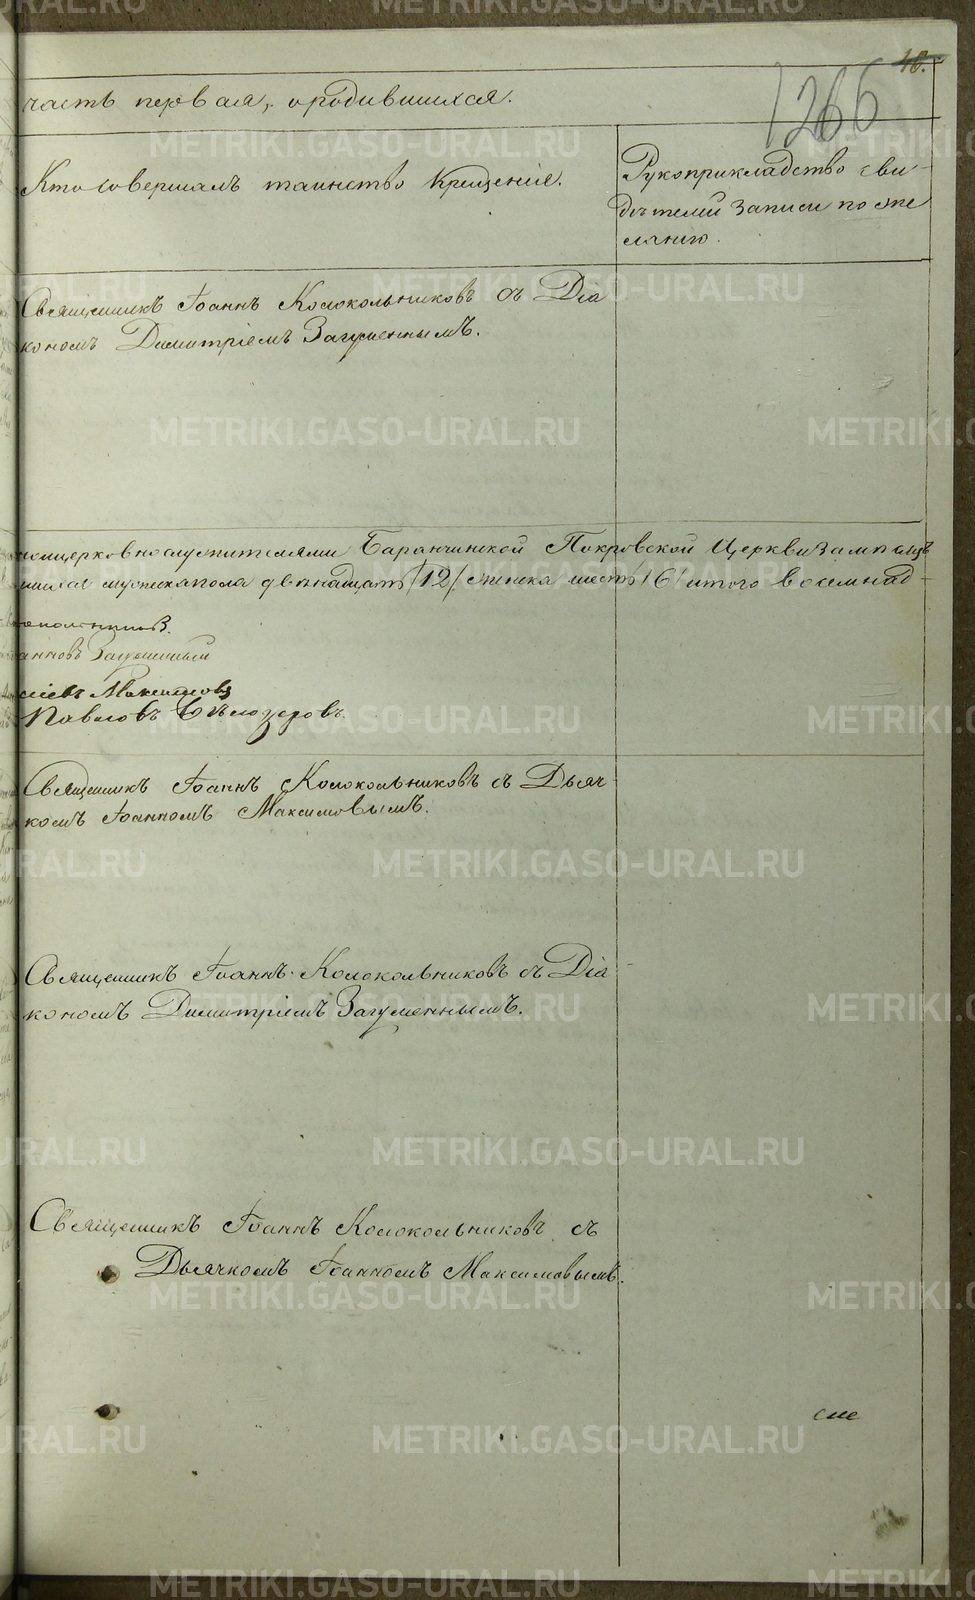 48.
1266
часть первая, о родившихся.
Кто совершалъ таинство крещенія.
Рукоприкладство сви-
дѣтелей записи по же
ланію.
Священникъ Іоаннъ Колокольниковъ съ Діа
кономъ Димитріемъ Загуменнымъ.
церковнослужителями Баранчинской Покровской Церкви
мужеска пола двѣнадцать /12/ женска шесть /6/ итого восемнад-
Загуменный
Максимовъ
Павловъ Бѣлозеровъ.
Священникъ Іоаннъ Колокольниковъ съ Дьяч-
комъ Іоанномъ Максимовымъ.
Священникъ Іоаннъ Колокольниковъ съ Діа-
кономъ Димитріемъ Загуменнымъ.
Священникъ Іоаннъ Колокольниковъ съ
Дьячкомъ Іоанномъ Максимовымъ.
METRIKI.GASO-URAL.RU